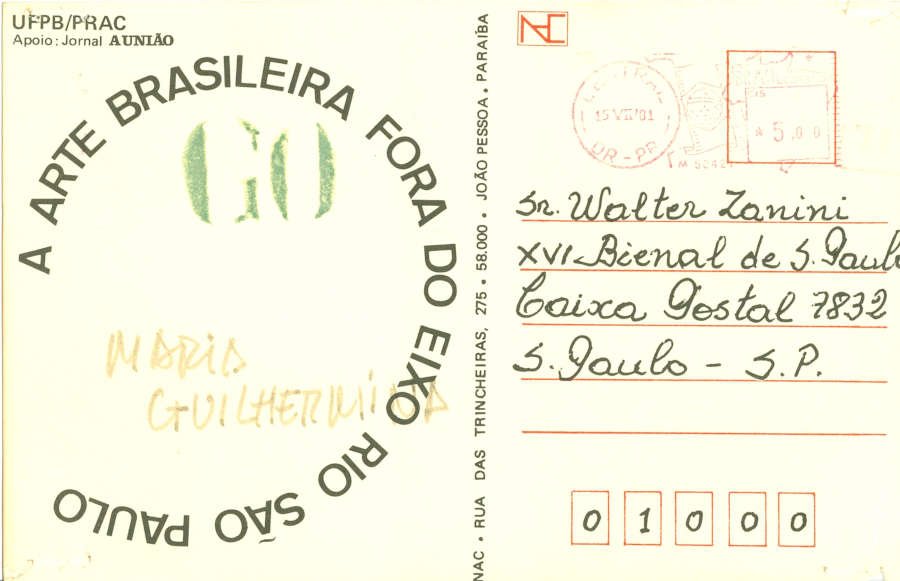 UFPB/PRAC
Apoio: Jornal A UNIÃO
A ARTE BRASILEIRA FORA DO EIXO RIO SÃO PAULO
GO
MARIA
GUILHERMINA
NAC • RUA DAS TRINCHEIRAS, 275 • 58.000 • JOÃO PESSOA • PARAÍBA
NAC
CENTRAL
15 VII 81
DR-PB
5,00
Sr. Walter Zanini
XVI Bienal de S. Paulo
Caixa Postal 7832
S. Paulo - S.P.
0 1 0 0 0